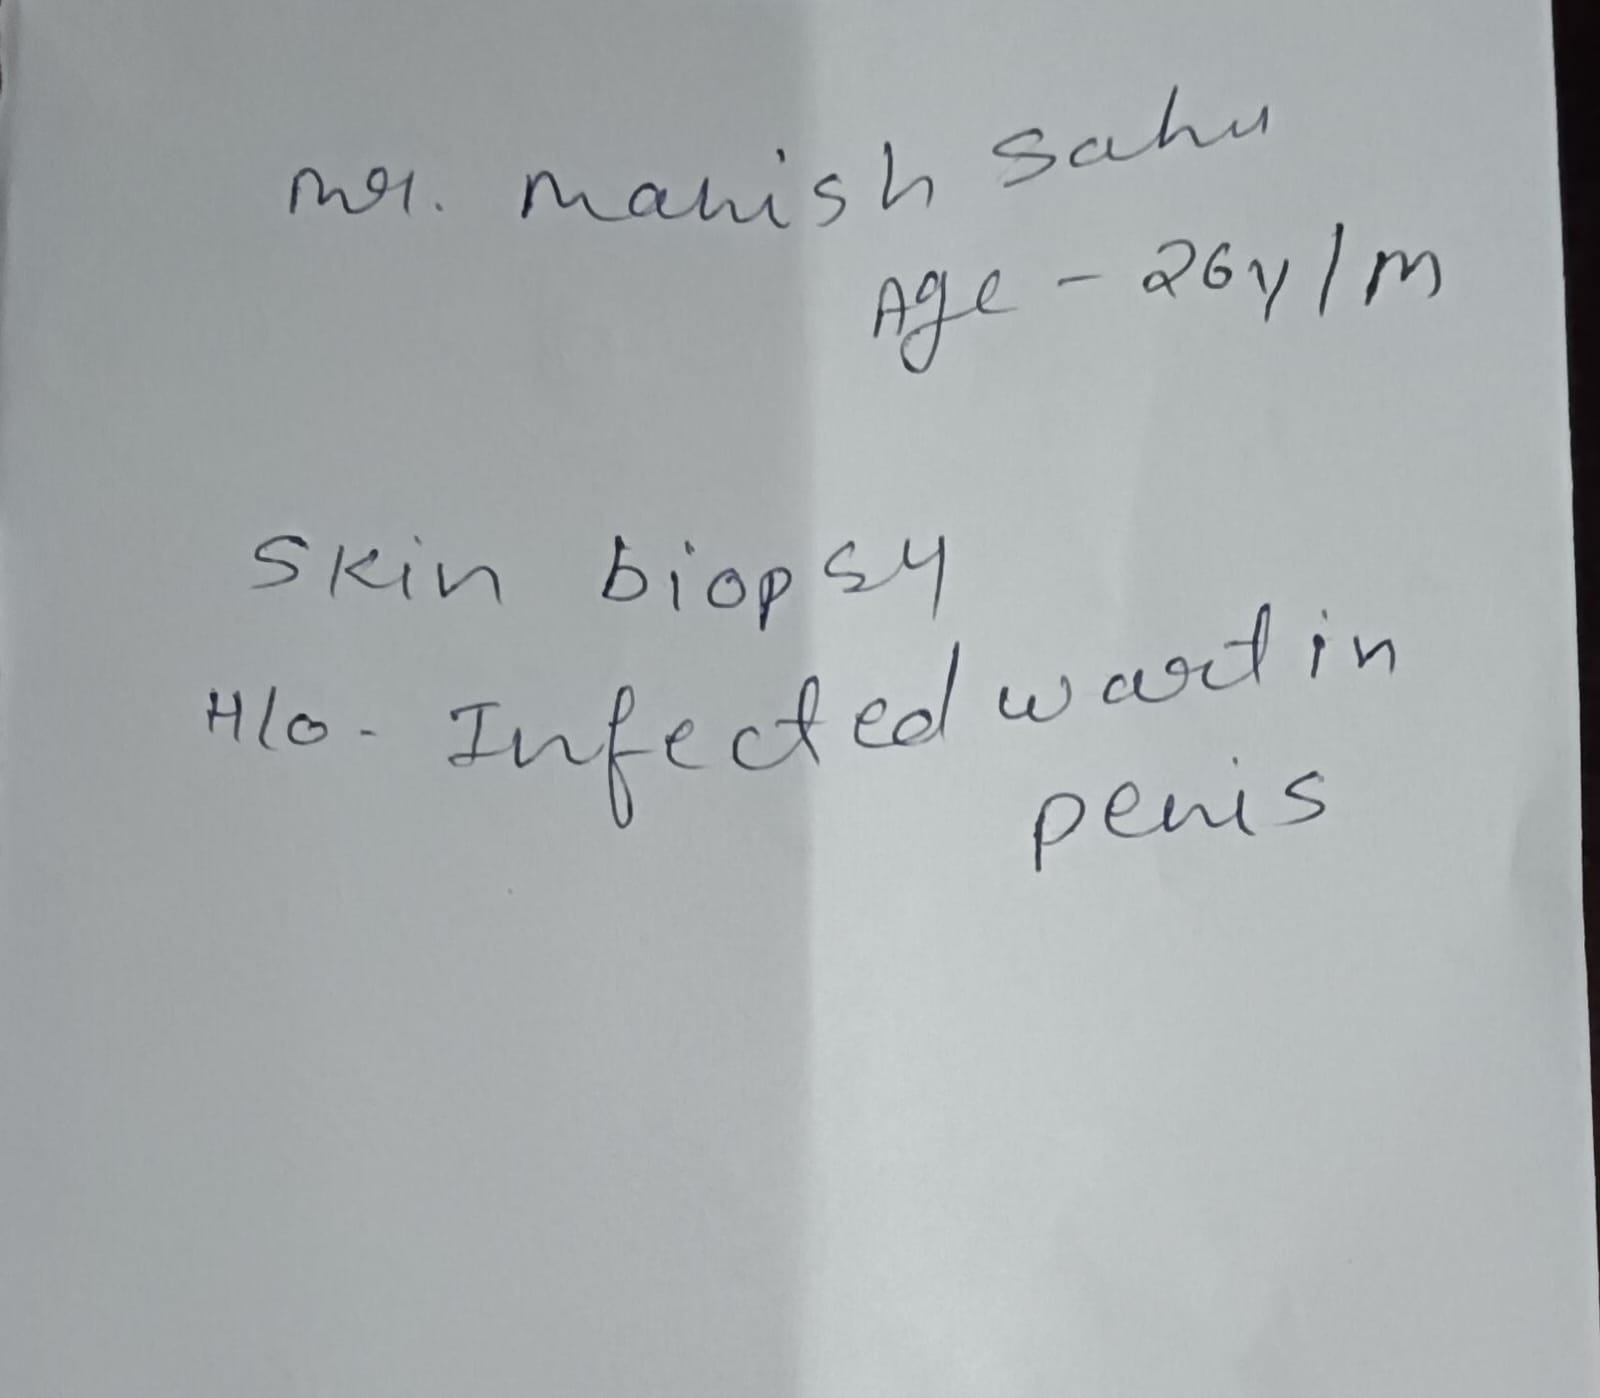 Mr. Manish Sahu
Age - 26y/m
Skin biopsy
H/o - Infected wart in
penis